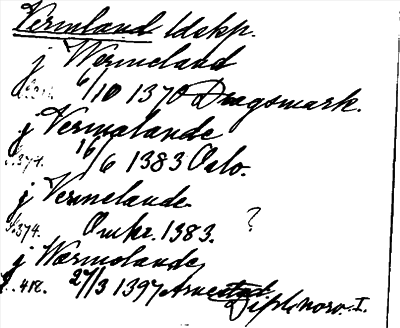 Vermland ldskp.
j Wermeland
6/10 1370 Dragsmark.
j Vermalande
s. 374. 16/6 1383 Oslo.
j Vermelande
s. 374. Omkr. 1383. ?
j Wærmolande
s. 412. 27/3 1397 Dipl. norv. I.